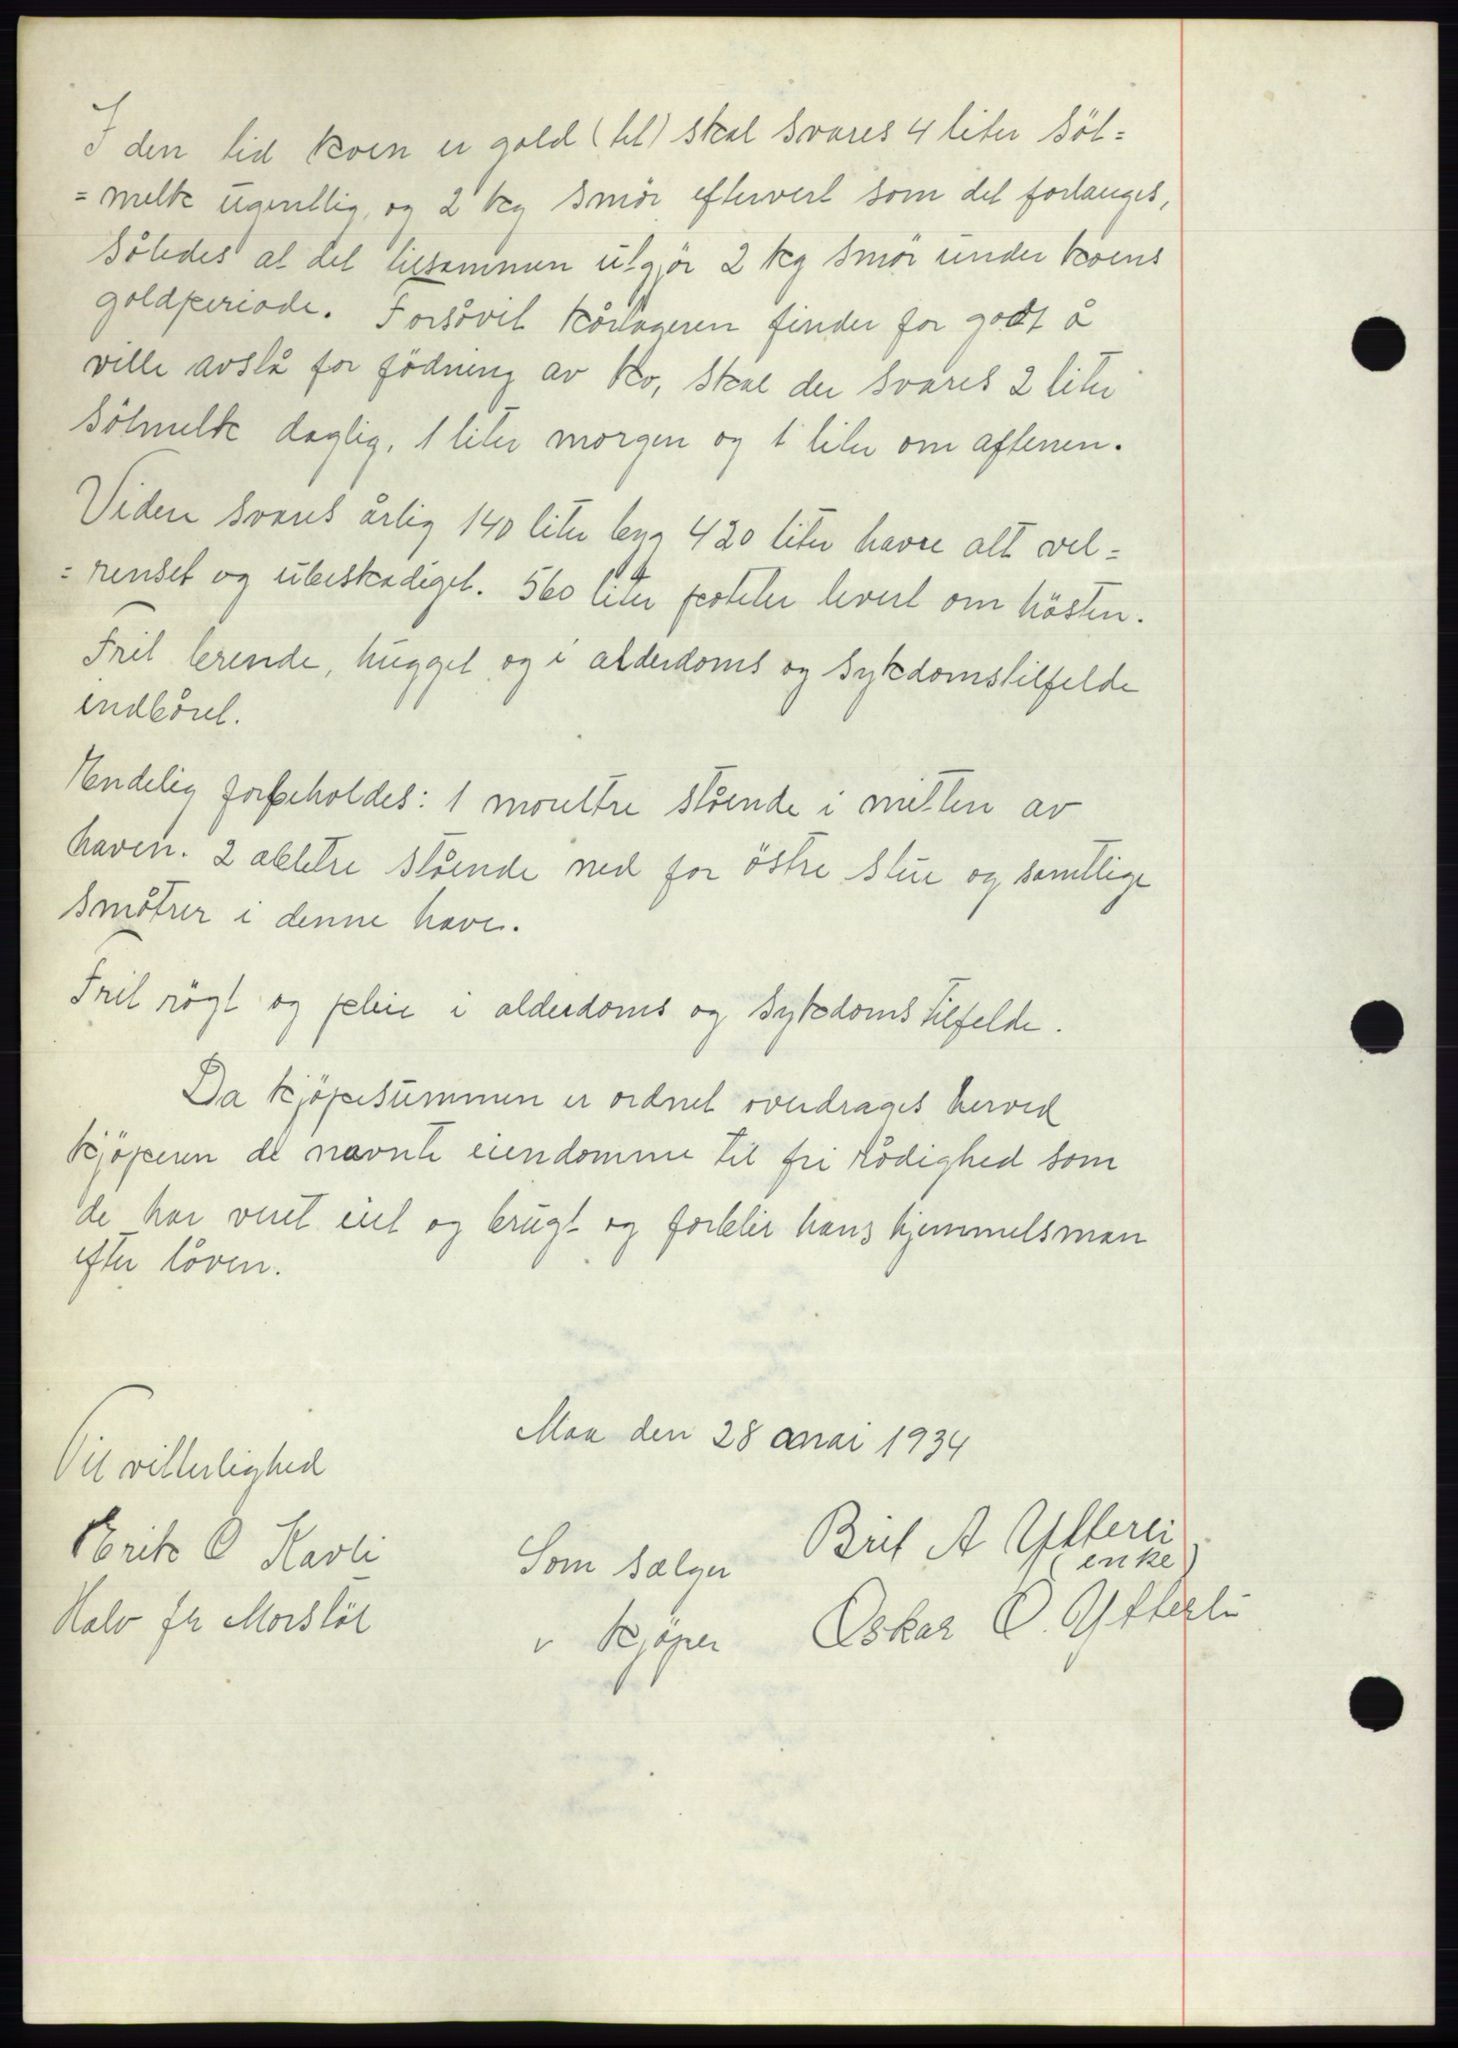 I den tid koen er gold (tet) skal svares 4 liter söt=
=melk ugentlig, og 2 kg smör eftervert som det forlanges,
således at det tilsammen utgjör 2 kg smör under koens
goldperiode. Forsåvit kårtageren finder for godt å
ville avslå for födning av ko, skal der svares 2 liter
sötmelk daglig, 1 liter morgen og 1 liter om aftenen.
Videre svares årlig 140 liter byg 420 liter havre alt vel=
=renset og ubeskadiget. 560 liter poteter levert om hösten.
Frit brende, hugget og i alderdoms og sykdomstilfelde
indbåret.
Endelig forbeholdes: 1 moreltre stående i mitten av
haven. 2 abletre stående ned for östre stue og samtlige
småtrer i denne have.
Frit rögt og pleie i alderdoms og sykdoms tilfelde.
Da kjöpesummen er ordnet overdrages herved
kjöperen de nævnte eiendomme til fri rådighed som
de har veret eiet og brugt og forblir hans hjemmelsman
efter låven.
Maa den 28 mai 1934
Til vitterlighed
Erik O Kavli
Halv fr Morstöl
Som sælger
Brit A Ytterli
(enke)
" kjöper
Oskar O. Ytterli